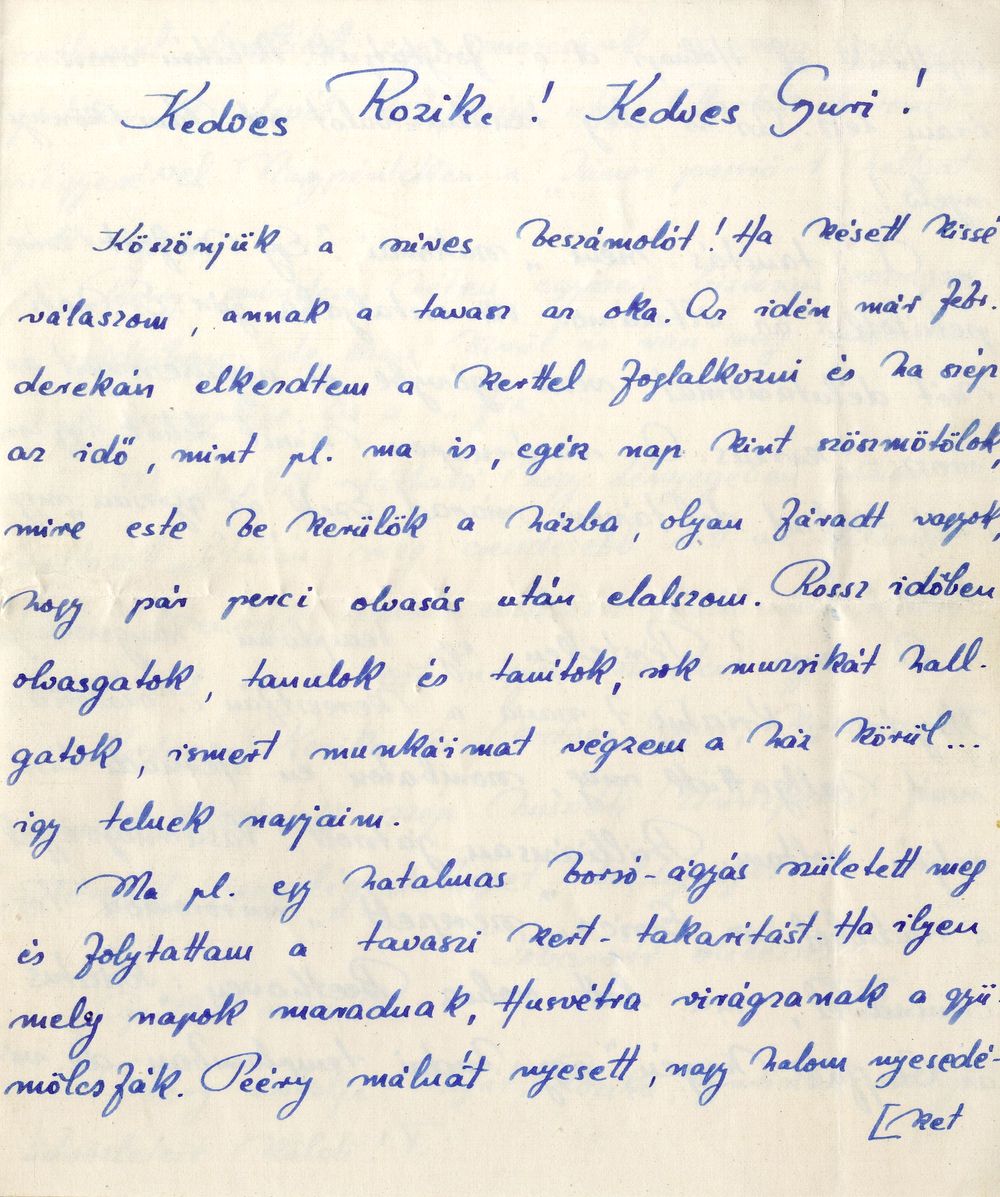 Kedves Rozike! Kedves Gyuri!
Köszönjük a szives beszámolót! Ha késett kissé
válaszom, annak a tavasz az oka. Az idén már febr.
derekán elkezdtem a kerttel foglalkozni és ha szép
az idő, mint pl. ma is, egész nap kint szöszmötölok,
mire este be kerülök a házba, olyan fáradt vagyok,
hogy pár perci olvasás után elalszom. Rossz időben
olvasgatok, tanulok és tanítok, sok muzsikát hall-
gatok, ismert munkáimat végzem a ház körül...
igy telnek napjaim.
Ma pl. egy hatalmas borsó-ágyás született meg
és folytattam a tavaszi kert-takaritást. Ha ilyen
mely napok maradnak, Husvétra virágzanak a gyü
mölcsfák. Peéry málnát nyesett, nagy halom nyesedé-
[ket